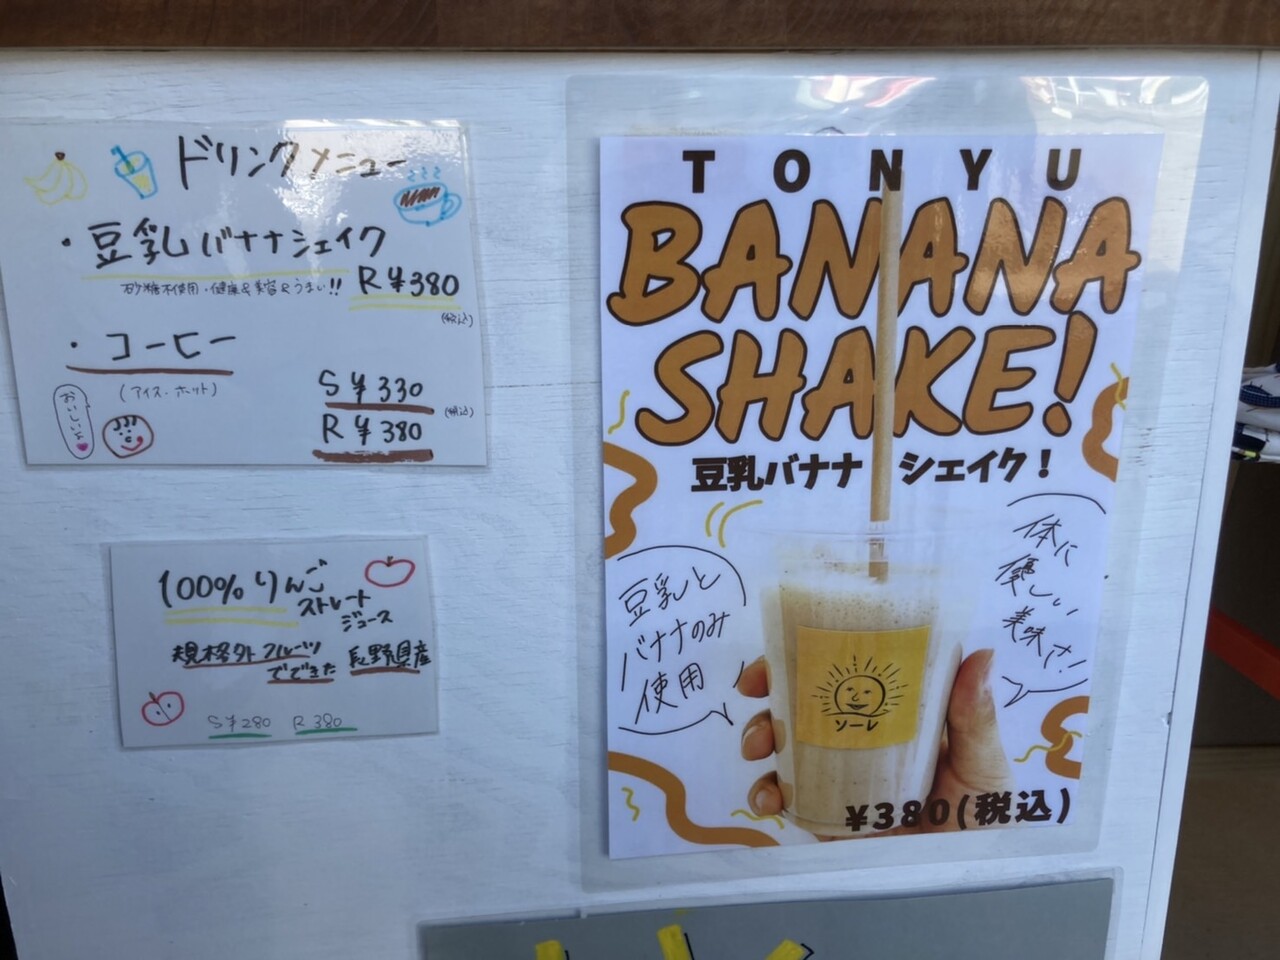 ドリンクメニュー
・豆乳バナナシェイク
砂糖不使用・健康&美容&うまい!! R ¥380
(税込)
・コーヒー
(アイス・ホット)
S ¥330
(税込)
R ¥380
おいしいよ
100%りんご
ストレート
ジュース
規格外フルーツ
でできた 長野県産
S¥280 R 380
TONYU
BANANA
SHAKE!
豆乳バナナ シェイク!
体に
優しい
美味さ!
豆乳と
バナナのみ
使用
ソーレ
¥380(税込)